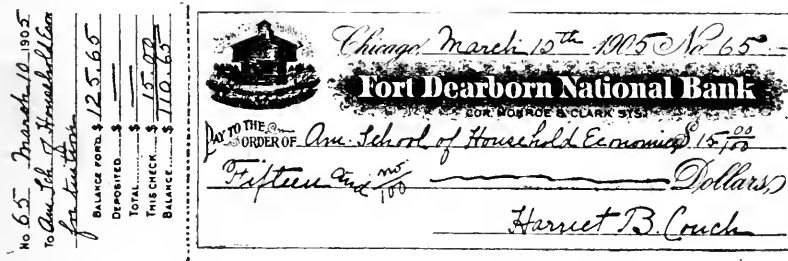 No 65 March 10 1905
To Am. Sch. of Household Econ
for tuition
BALANCE FORD. $ 125.65
DEPOSITED $
TOTAL $
THIS CHECK $ 15.00
BALANCE $ 110.65
Chicago, March 10th 1905 No. 65
Fort Dearborn National Bank
COR. MONROE & CLARK STS.
PAY TO THE
ORDER OF Am. School of Household Economics $ 15 00/100
Fifteen and no/100 Dollars
Harriet B. Couch